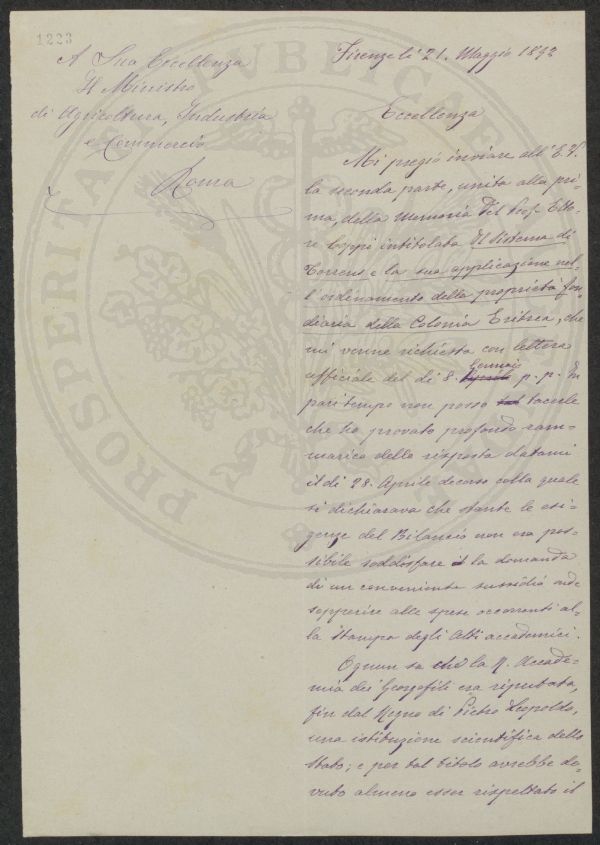 1223
A Sua Eccellenza
Il Ministro
di Agricoltura, Industria
e Commercio
Roma
Firenze li 21. Maggio 1892
Eccellenza
Mi pregio inviare all'E.V.
la seconda parte, unita alla pri-
ma, della Memoria del Prof. Etto-
re Coppi intitolata Il Sistema di
Torrens e la sua applicazione nel-
l'ordinamento della proprietà fon-
diaria della Colonia Eritrea, che
mi venne richiesta con lettera
ufficiale del dì 8. Aprile Gennaio p. p. In
pari tempo non posso tacerle
che ho provato profondo ram-
marico della risposta datami
il dì 28. Aprile decorso colla quale
si dichiarava che stante le esi-
genze del Bilancio non era pos-
sibile soddisfare la domanda
di un conveniente sussidio onde
sopperire alle spese occorrenti al-
la stampa degli Atti accademici.
Ognun sa che la R. Accade-
mia dei Georgofili era reputata,
fin dal Regno di Pietro Leopoldo,
una istituzione scientifica dello
Stato; e per tal titolo avrebbe do-
vuto almeno esser rispettato il
PROSPERITATI PUBLICAE